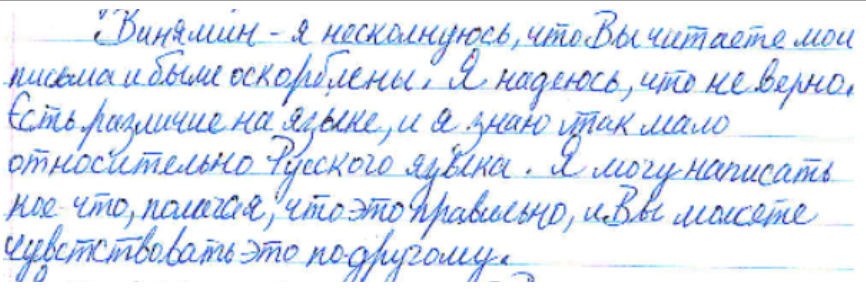 Винямин - я несколнуюсь, что Вы читаете мои
письма и были оскорблены. Я надеюсь, что не верно.
Есть различие на языке, и я знаю так мало
относительно Русского языка. Я могу написать
кое-что, полагая, что это правильно, и Вы можете
чувстствовать это по-другому.